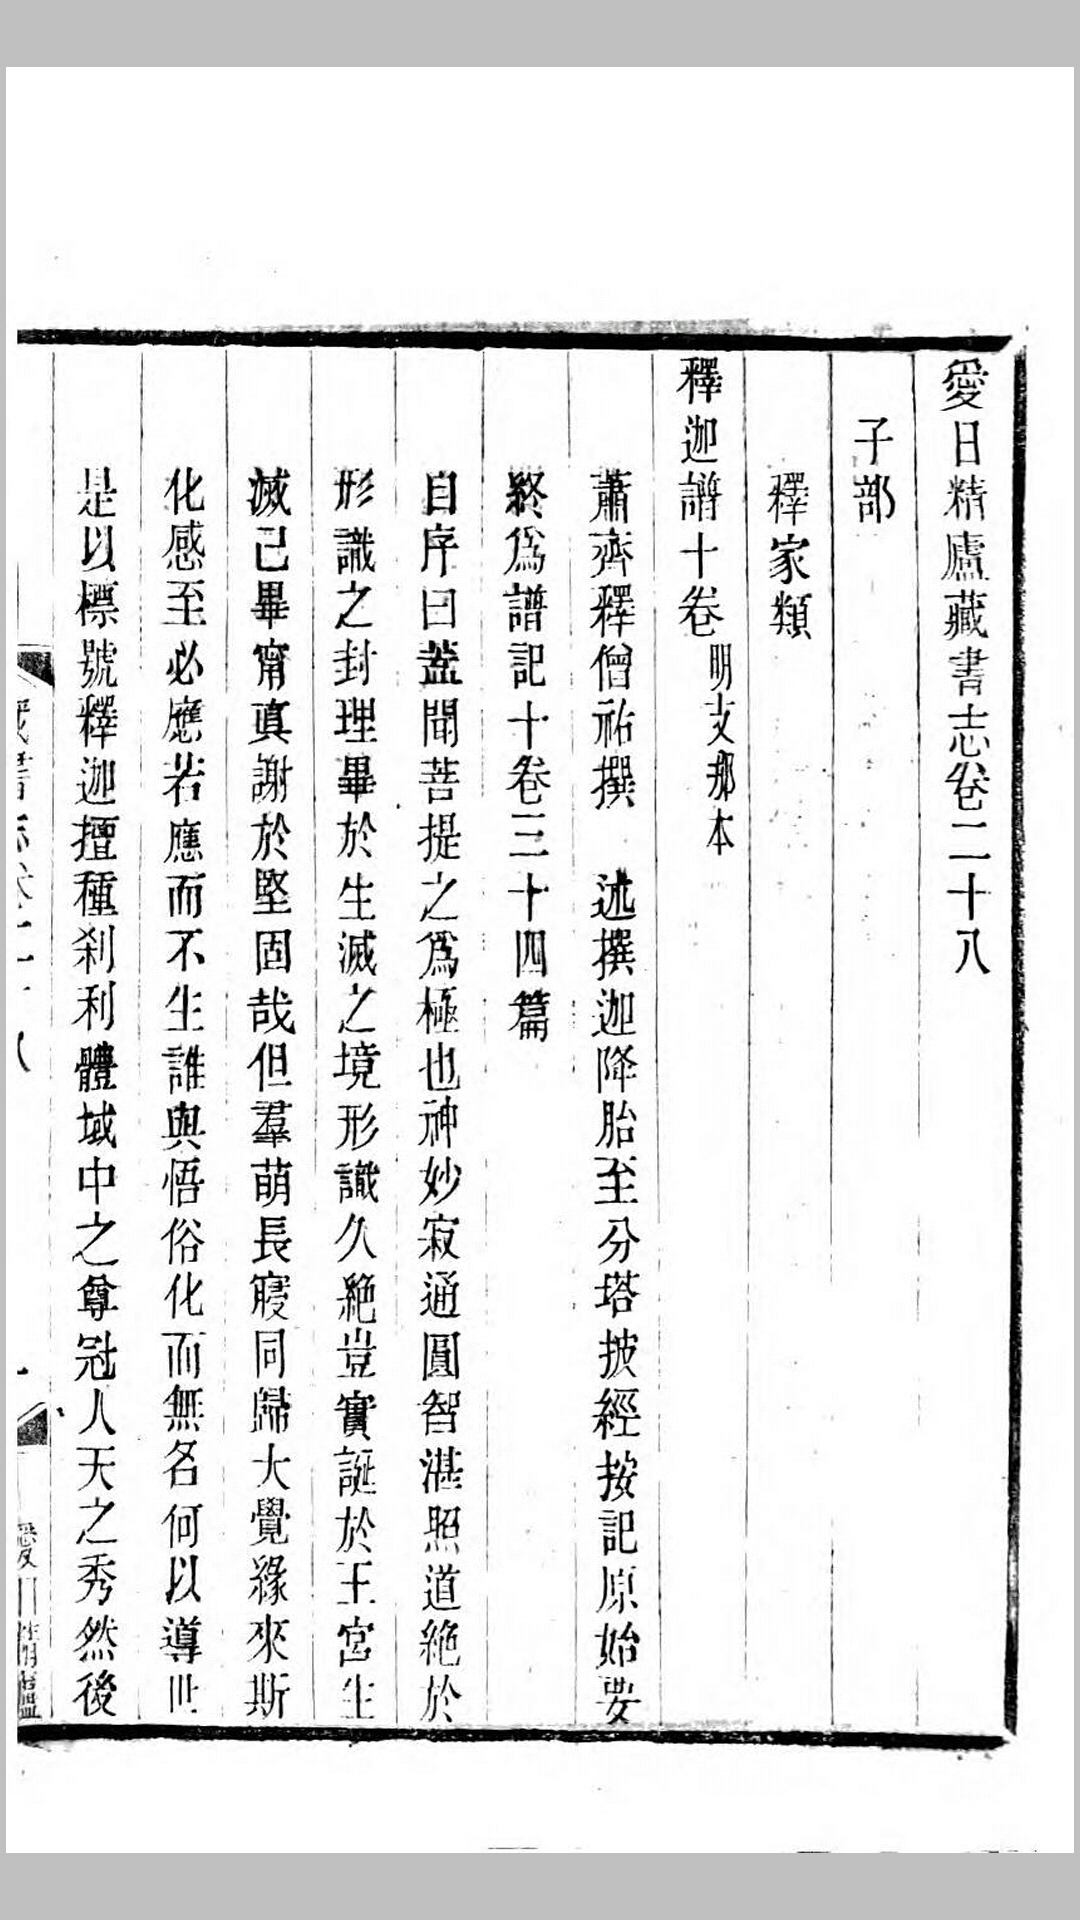 愛日精廬藏書志卷二十八
子部
釋家類
釋迦譜十卷明支那本
蕭齊釋僧祐撰　述撰迦降胎至分塔披經按記原始要
終爲譜記十卷三十四篇
自序曰葢聞菩提之爲極也神妙寂通圓智湛照道絶於
形識之封理畢於生滅之境形識久絶豈實誕於王宮生
滅已畢甯眞謝於堅固哉但羣萌長寢同歸大覺緣來斯
化感至必應若應而不生誰與悟俗化而無名何以導世
是以標號釋迦擅種刹利體域中之尊冠人天之秀然後
藏書志卷二十八
一
愛日精廬